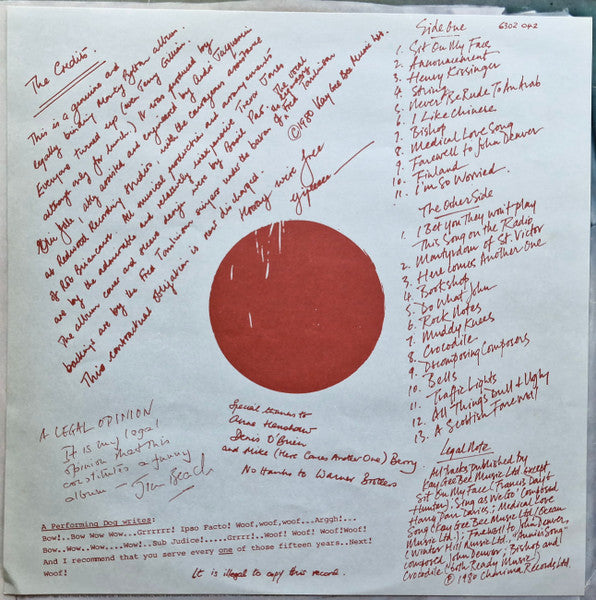 The Credits.
This is a genuine and
legally binding Monty Python album.
Everyone turned up (even Terry Gilliam
although only for lunch). It was produced by
Eric Idle, ably assisted and engineered by André Jacquemin
at Redwood Recording Studios, with the courageous assistance
of Rob Brierance. All musical production and arrangements
are by the admirable and relatively inexpensive Trevor Jones
The album cover and sleeve design was by Basil Pao. The vocal
backings are by the Fred Tomlinson singers under the baton of Fred Tomlinson
This contractual obligation is now discharged.
Hooray we're free
©1980 Kay Gee Bee Music Ltd.
Side One
6302 042
1. Sit On My Face
2. Announcement
3. Henry Kissinger
4. String
5. Never Be Rude To An Arab
6. I Like Chinese
7. Bishop
8. Medical Love Song
9. Farewell to John Denver
10. Finland
11. I'm So Worried.
The Other Side
1. I Bet You They Won't Play
This Song on the Radio
2. Martyrdom of St. Victor
3. Here Comes Another One
4. Bookshop
5. Do What John
6. Rock Notes
7. Muddy Knees
8. Crocodile
9. Decomposing Composers
10. Bells
11. Traffic Lights
12. All Things Dull & Ugly
13. A Scottish Farewell
A LEGAL OPINION
It is my legal
opinion that this
constitutes a funny
album – Jim Beach
Special thanks to
Anne Henshaw
Denis O'Brien
and Mike (Here Comes Another One) Berry.
No thanks to Warner Brothers
A Performing Dog writes:
Bow!..Bow Wow Wow...Grrrrrr! Ipao Pacto! Woof,woof,woof...Arggh!...
Bow..Wow..Wow....Wow!..Sub Judice!.....Grrrr!..Woof! Woof! Woof!Woof!
And I recommend that you serve every one of those fifteen years..Next!
Woof!
It is illegal to copy this record.
Legal Note
All tracks published by
Kay Gee Bee Music Ltd except
Sit On My Face (Francis Day &
Hunter), Sing as We Go composed
Harry Parr Davies; Medical Love
Song (Kay Gee Bee Music Ltd/Ocean
Music Ltd.); Farewell to John Denver,
(Winter Hill Music Ltd. "Annie's Song"
composed John Denver; Bishop and
Crocodile (both Ready Music)
© 1980 Charisma Records Ltd.